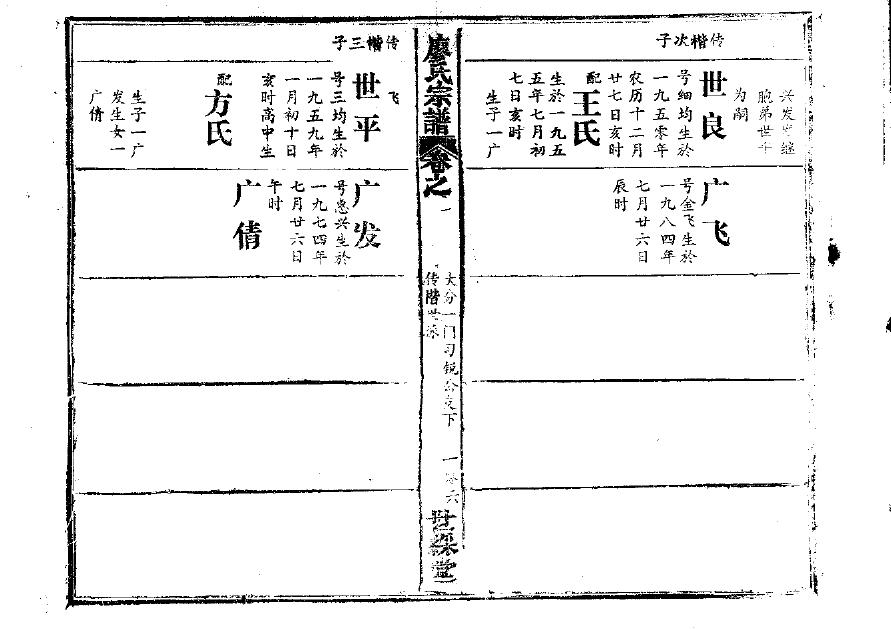 传楷次子
兴发继
胞弟世平
为嗣
世良
号细均生於
一九五零年
农历十二月
廿七日亥时
配王氏
生於一九五
五年七月初
七日亥时
生子一广
广飞
号金飞生於
一九八四年
七月廿六日
辰时
廖氏宗譜
卷之一
大分一门习锐公支下
传楷世派
一零六
世綵堂
传楷三子
飞
世平
号三均生於
一九五九年
一月初十日
亥时高中生
配方氏
生子一广
发生女一
广倩
广发
号惠兴生於
一九七四年
七月廿六日
午时
广倩